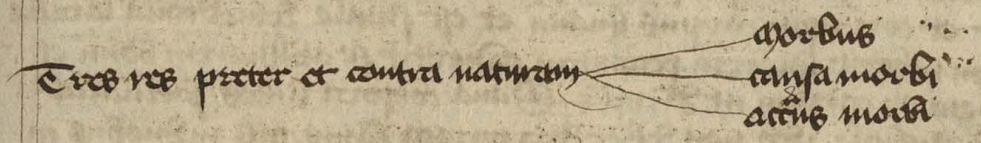 Tres res preter et contra naturam
Morbus
causa morbi
accñs morbi